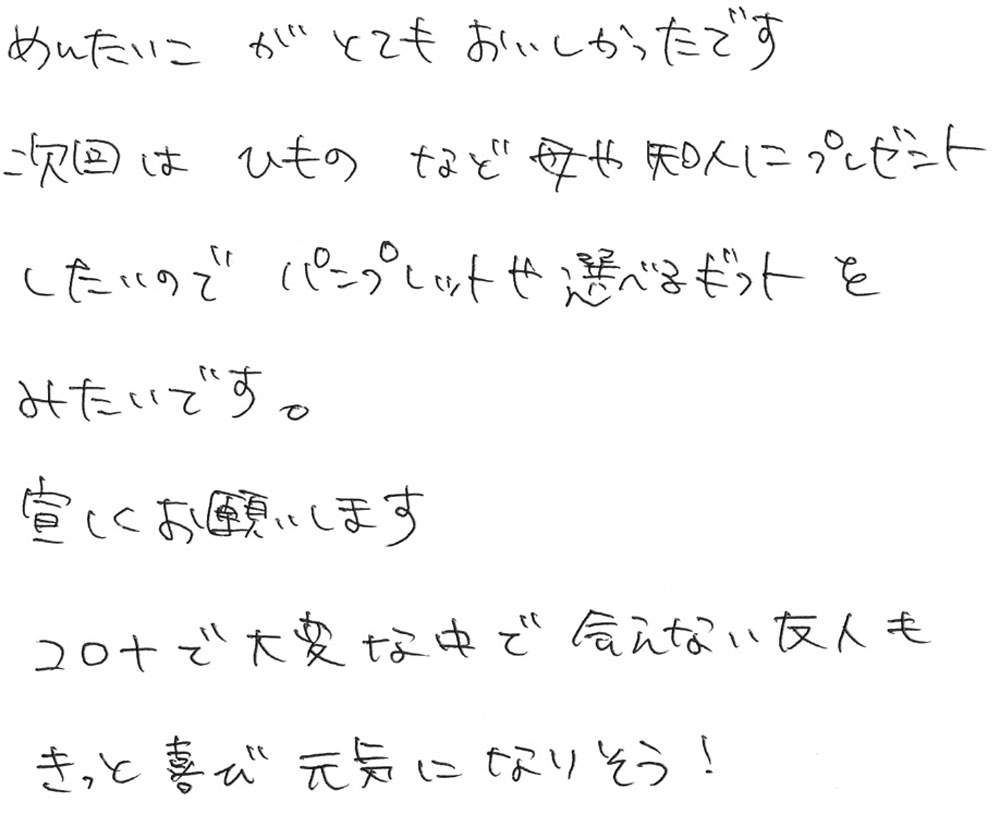 めんたいこ がとてもおいしかったです
次回は ひもの など母や知人にプレゼント
したいので パンプレットや選べるギフトを
みたいです。
宜しくお願いします
コロナで大変な中で会えない友人も
きっと喜び元気になりそう!